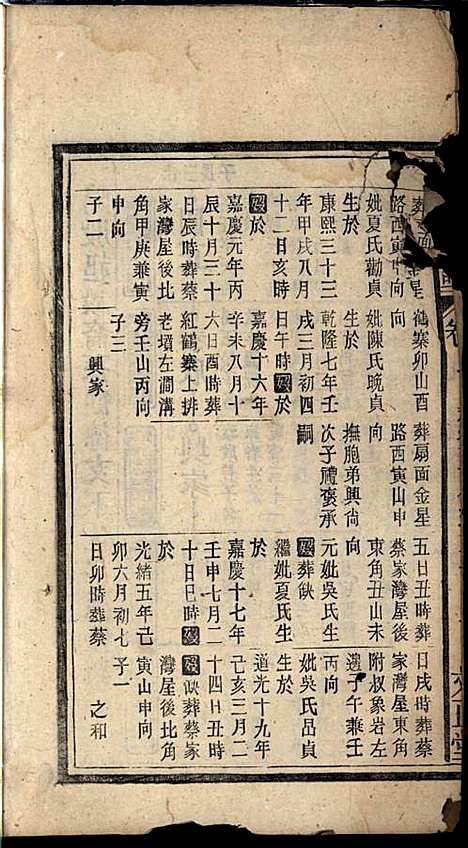 葬面星
路西寅申向
妣夏氏勸貞
生於
康熙三十三
年甲戌八月
十二日亥時
歿於
嘉慶元年丙
辰十月三十
日辰時葬蔡
家灣屋後北
角甲庚兼寅
申向
子二
鶴寨卯山酉
向
妣陳氏晚貞
生於
乾隆七年壬
戌三月初四
日午時歿於
嘉慶十六年
辛未八月十
六日酉時葬
紅鶴寨上排
老墳左澗溝
旁壬山丙向
子三
興家
葬扇面金星
路西寅山申
向
撫胞弟興尙
次子禮褒承
嗣
五日丑時葬
蔡家灣屋後
東角丑山未
向
元妣吳氏生
歿葬缺
繼妣夏氏生
於
嘉慶十七年
壬申七月二
十日巳時歿
於
光緒五年己
卯六月初七
日卯時葬蔡
日戌時葬蔡
家灣屋東角
附叔象岩左
邊子午兼壬
丙向
妣吳氏品貞
生於
道光十九年
己亥三月二
十四日丑時
歿缺葬蔡家
灣屋後北角
寅山申向
子一
之和